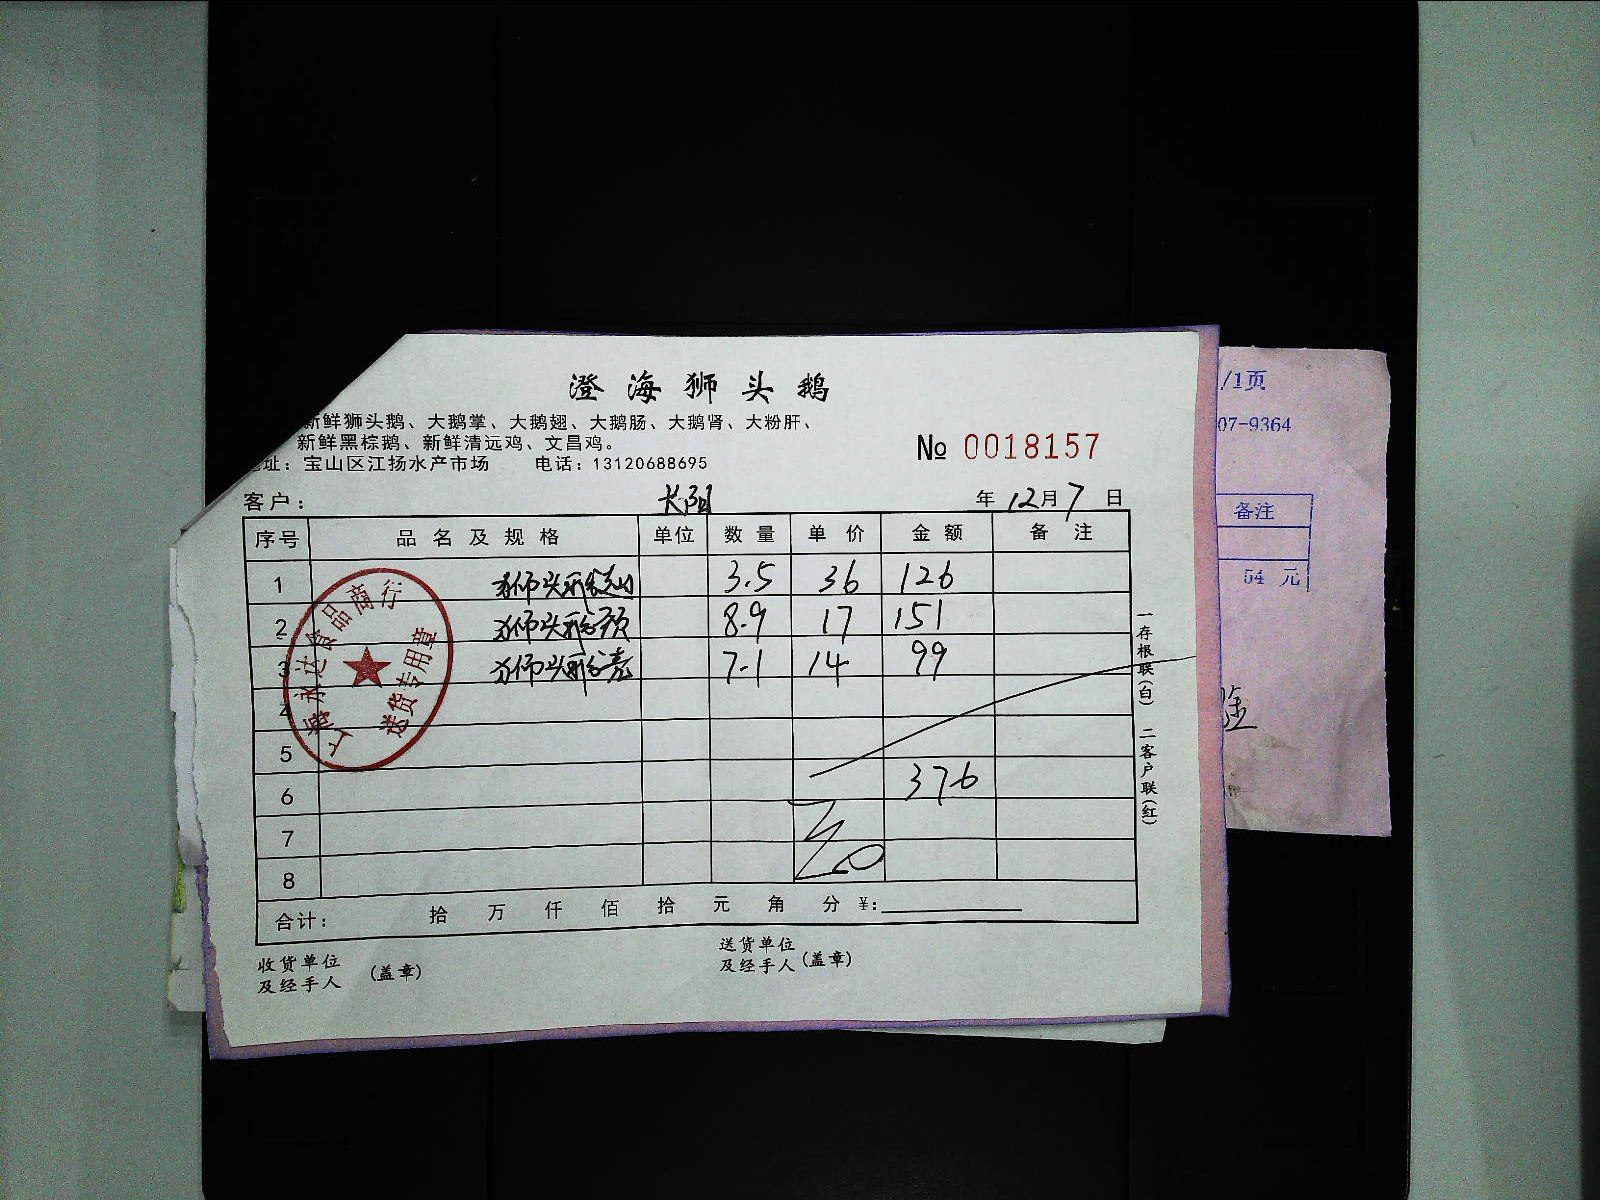 澄海狮头鹅
新鲜狮头鹅、大鹅掌、大鹅翅、大鹅肠、大鹅肾、大粉肝、
新鲜黑棕鹅、新鲜清远鸡、文昌鸡。
址：宝山区江扬水产市场 电话：13120688695
№ 0018157
客户： 长阳 年 12月 7 日
序号 品名及规格 单位 数量 单价 金额 备注
1 狮头鹅 3.5 36 126
2 狮头鹅 8.9 17 151
3 狮头鹅 7.1 14 99
4
5
6 376
7
8
合计： 拾 万 仟 佰 拾 元 角 分 ¥:
收货单位
及经手人 (盖章)
送货单位
及经手人 (盖章)
一存根联(白) 二客户联(红)
上海永达食品商行
送货专用章
/1页
07-9364
备注
54 元